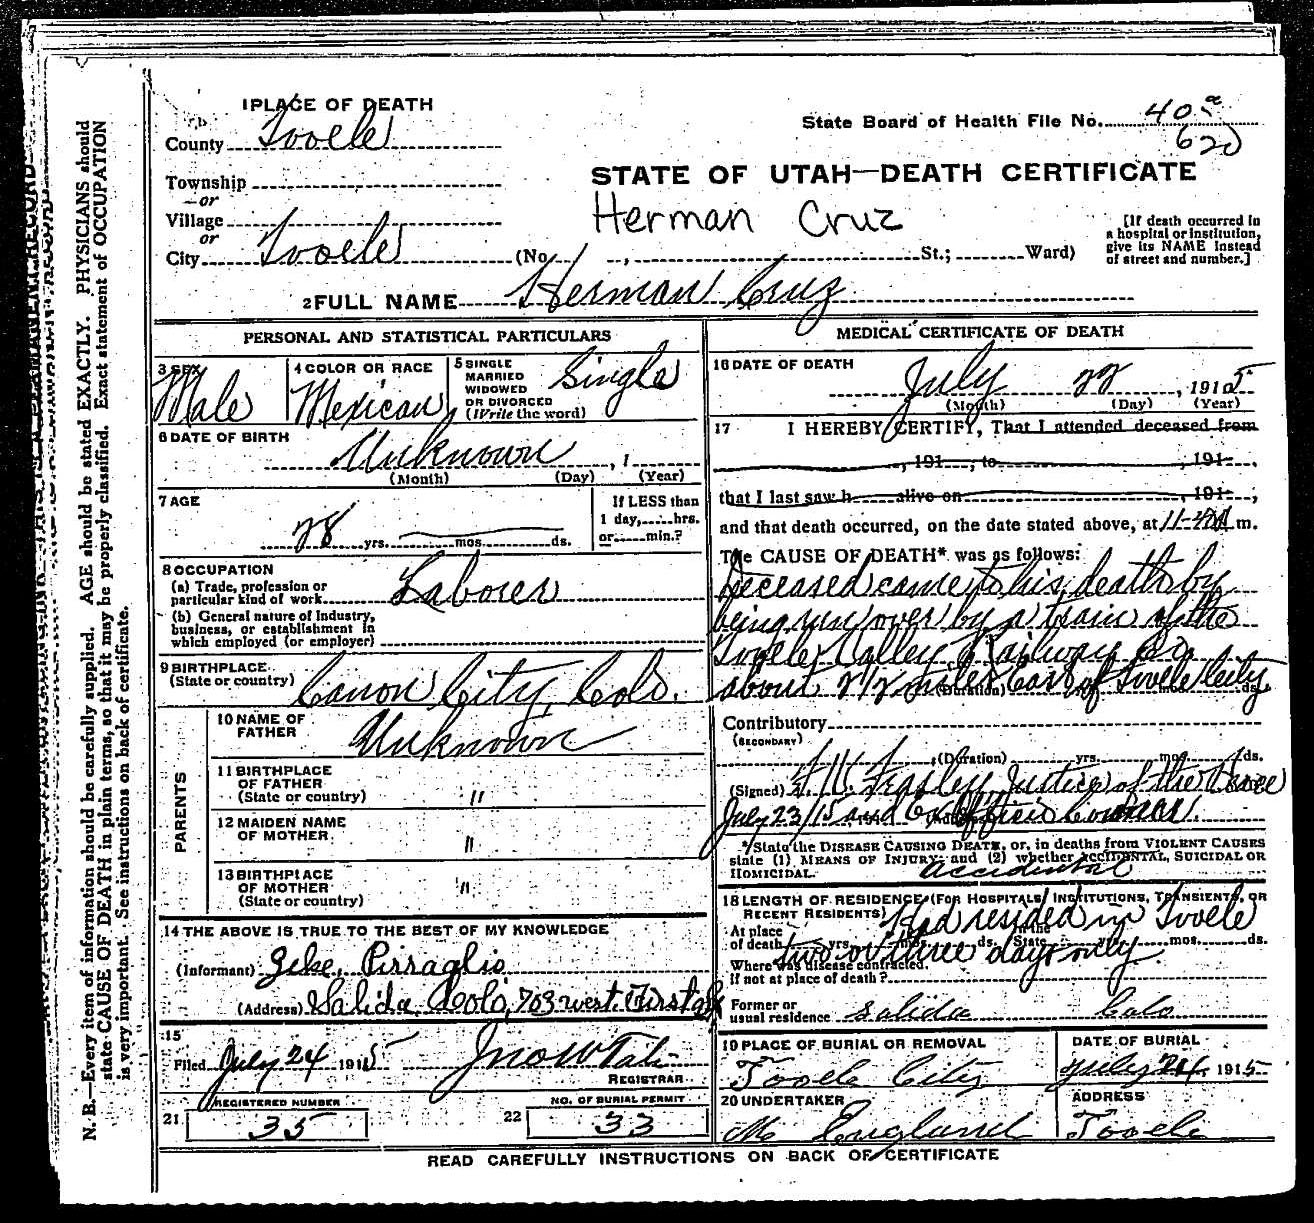 1 PLACE OF DEATH
County Tooele
State Board of Health File No. 40 a
620
Township
or
Village
or
City Tooele
STATE OF UTAH—DEATH CERTIFICATE
Herman Cruz
[If death occurred in a hospital or institution, give its NAME instead of street and number.]
(No. , St.; Ward)
2 FULL NAME Herman Cruz
PERSONAL AND STATISTICAL PARTICULARS
3 SEX Male
4 COLOR OR RACE Mexican
5 SINGLE MARRIED WIDOWED OR DIVORCED (Write the word) Single
6 DATE OF BIRTH Unknown , 1
(Month) (Day) (Year)
7 AGE
28 yrs. mos. ds.
If LESS than 1 day, hrs. or min.?
8 OCCUPATION
(a) Trade, profession or particular kind of work Laborer
(b) General nature of Industry, business, or establishment in which employed (or employer)
9 BIRTHPLACE
(State or country) Canon City, Colo.
PARENTS
10 NAME OF FATHER Unknown
11 BIRTHPLACE OF FATHER (State or country) "
12 MAIDEN NAME OF MOTHER "
13 BIRTHPLACE OF MOTHER (State or country) "
14 THE ABOVE IS TRUE TO THE BEST OF MY KNOWLEDGE
(Informant) Pirraglio
(Address) Salida Colo, 703 west First
15
Filed July 24 1915
REGISTRAR
REGISTERED NUMBER
21 35
NO. OF BURIAL PERMIT
22 33
MEDICAL CERTIFICATE OF DEATH
16 DATE OF DEATH
July 22 , 1915
(Month) (Day) (Year)
17 I HEREBY CERTIFY, That I attended deceased from
, 191 , to , 191 ,
that I last saw h alive on , 191 ;
and that death occurred, on the date stated above, at m.
The CAUSE OF DEATH* was as follows:
Deceased came to his death by
being run over by a train of the
Tooele Valley Railway Co
about 2 1/2 miles East of Tooele City
(Duration) yrs. mos. ds.
Contributory
(SECONDARY)
(Duration) yrs. mos. ds.
(Signed) Justice of the Peace
July 23/15 and Ex Officio Coroner.
*State the DISEASE CAUSING DEATH, or, in deaths from VIOLENT CAUSES
state (1) MEANS OF INJURY; and (2) whether ACCIDENTAL, SUICIDAL OR
HOMICIDAL. Accidental
18 LENGTH OF RESIDENCE (FOR HOSPITALS, INSTITUTIONS, TRANSIENTS, OR
RECENT RESIDENTS) Had resided in Tooele
At place of death yrs. mos. ds. In the State yrs. mos. ds.
two or three days only
Where was disease contracted, if not at place of death?
Former or usual residence Salida Colo
19 PLACE OF BURIAL OR REMOVAL
Tooele City
DATE OF BURIAL
July 24 1915
20 UNDERTAKER
M England
ADDRESS
Tooele
READ CAREFULLY INSTRUCTIONS ON BACK OF CERTIFICATE
N. B.—Every item of information should be carefully supplied. AGE should be stated EXACTLY. PHYSICIANS should
state CAUSE OF DEATH in plain terms, so that it may be properly classified. Exact statement of OCCUPATION
is very important. See instructions on back of certificate.